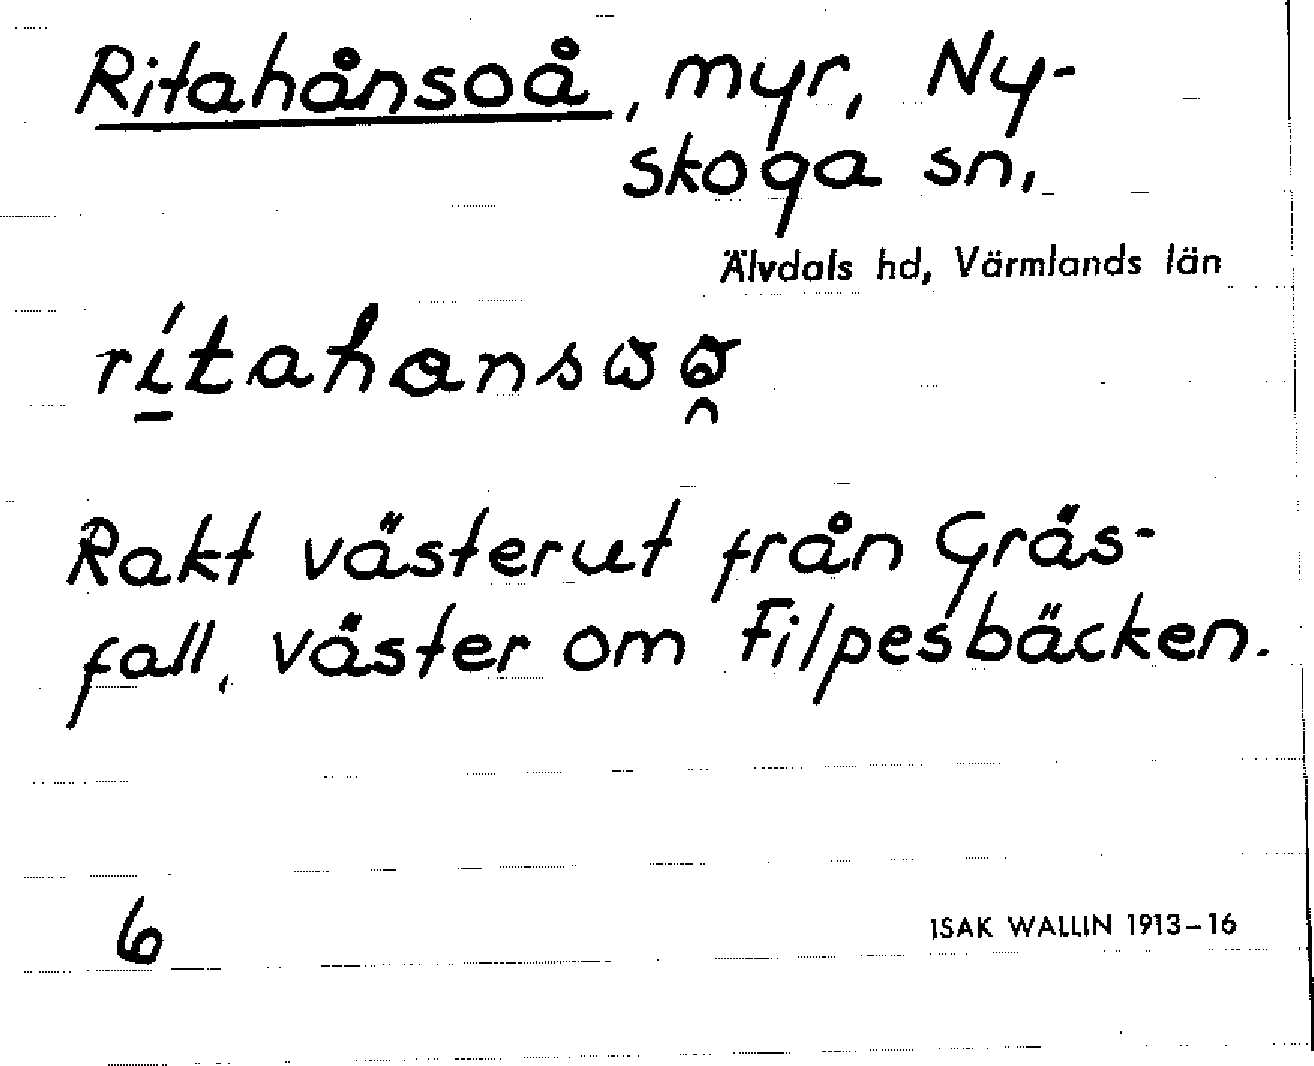 Ritahånsoå, myr, Ny-
skoga sn,
Älvdals hd, Värmlands län
Rakt västerut från Gräs-
fall, väster om Filpesbäcken.
6
ISAK WALLIN 1913-16